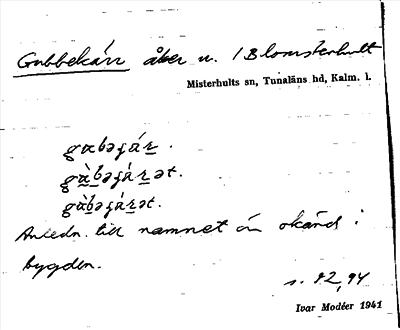 Gubbekärr åker u. 1 Blomsterhult
Misterhults sn, Tunaläns hd, Kalm. l.
gubəɟár.
gàbəɟárət.
gàbəɟárət.
Anledn. till namnet är okänd i
bygden.
s. 92, 94
Ivar Modéer 1941